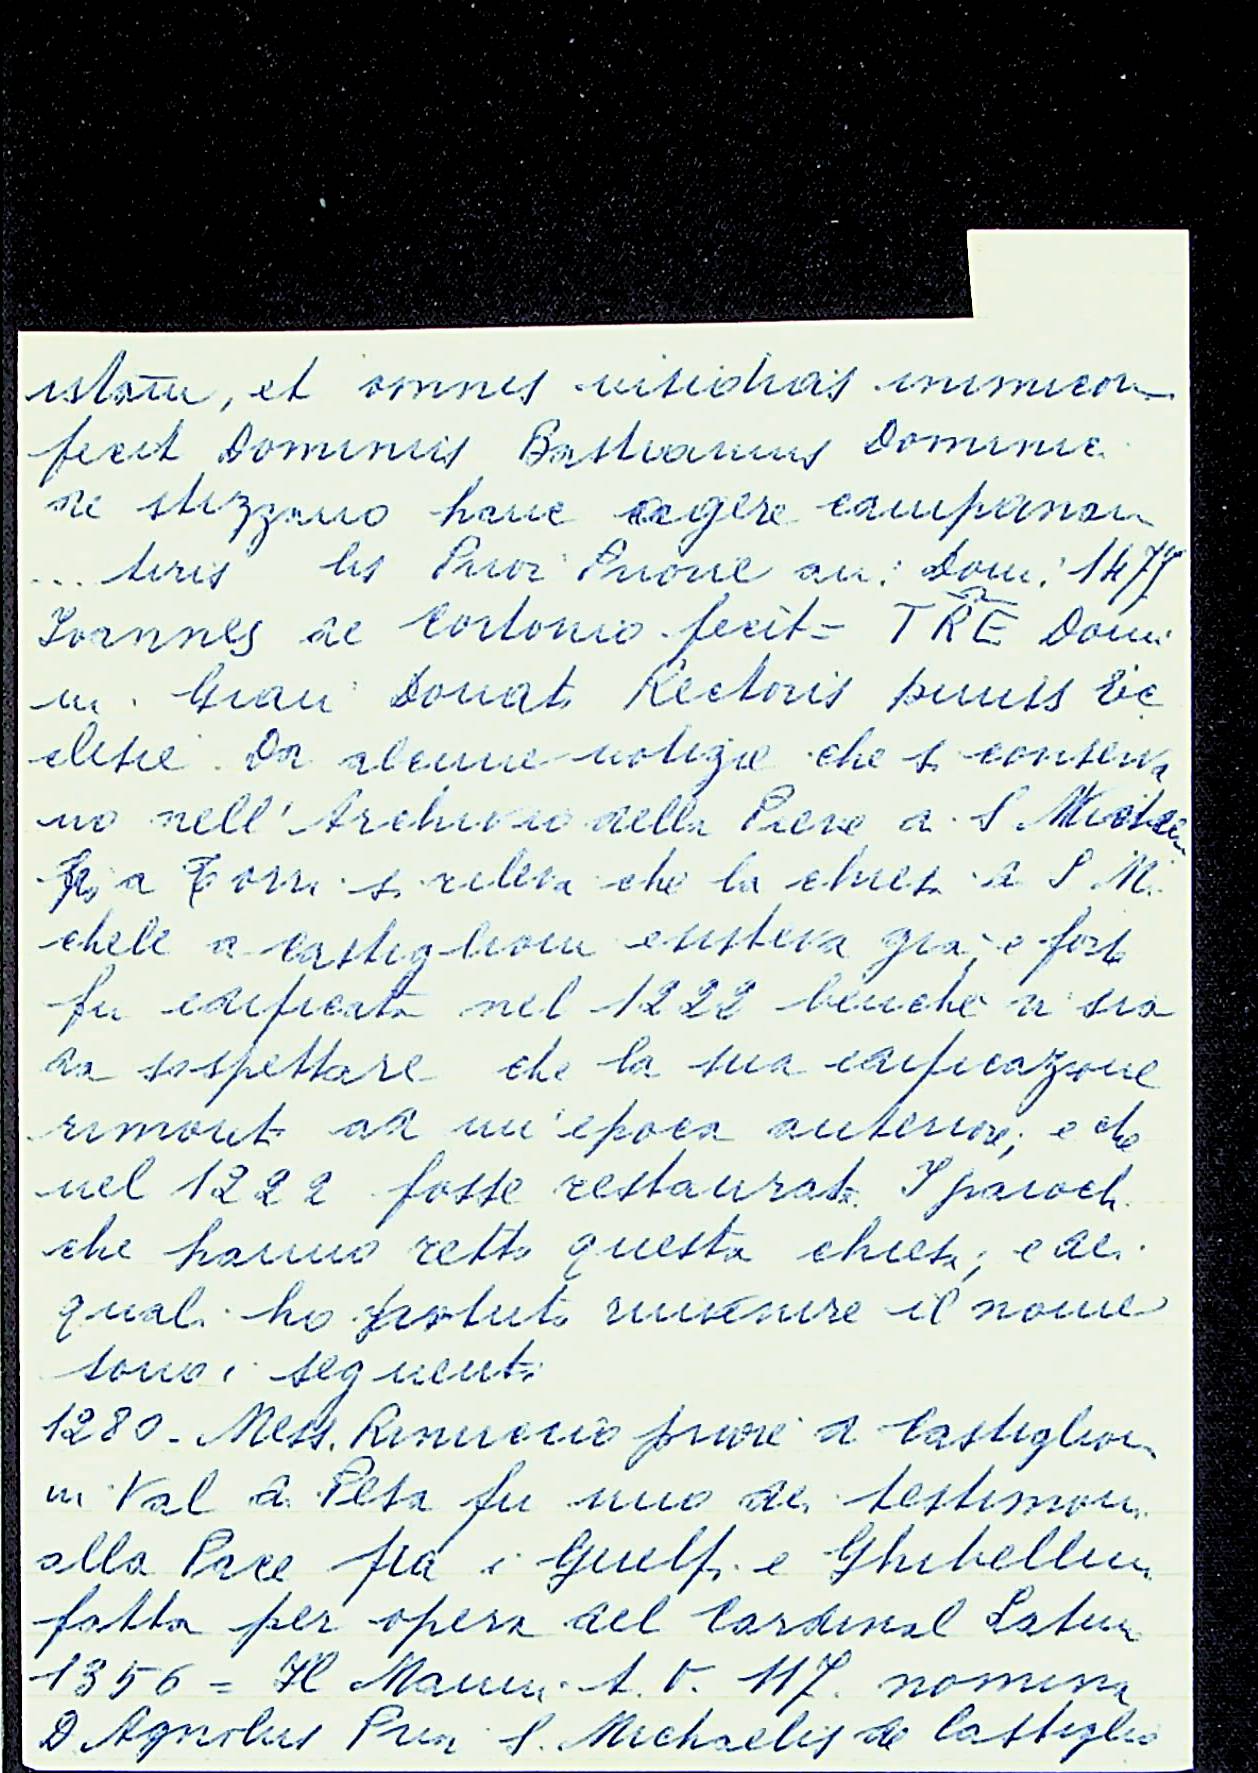 istam, et omnes insidias inimicor
fecit Dominus Bastianus Dominic
de stizzano hanc aegere campanam
... turis Prior Priore an: Dom: 1477
Joannes de Cortonio fecit = TRE Domi
ni Gian Donat. Rectoris huius Ec
clesie. Da alcune notizie che si conserva
no nell'Archivio della Pieve di S Michele
a Torri si rileva che la chiesa di S Mi
chele a Castiglioni esisteva già, e forse
fu edificata nel 1222 benchè vi sia
da sospettare che la sua edificazione
rimonti ad un'epoca anteriore; e che
nel 1222 fosse restaurata. I parochi
che hanno retto questa chiesa, e dei
quali ho potuto rinvenire il nome
sono i seguenti
1280 - Mess. Rinuccio priore di Castiglioni
in Val di Pesa fu uno dei testimoni
alla Pace fra i Guelfi e Ghibellini
fatta per opera del Cardinal Latino
1356 = Il Manni t. V. 117. nomina
D Agnolus Prior S. Michaelis de Castiglio